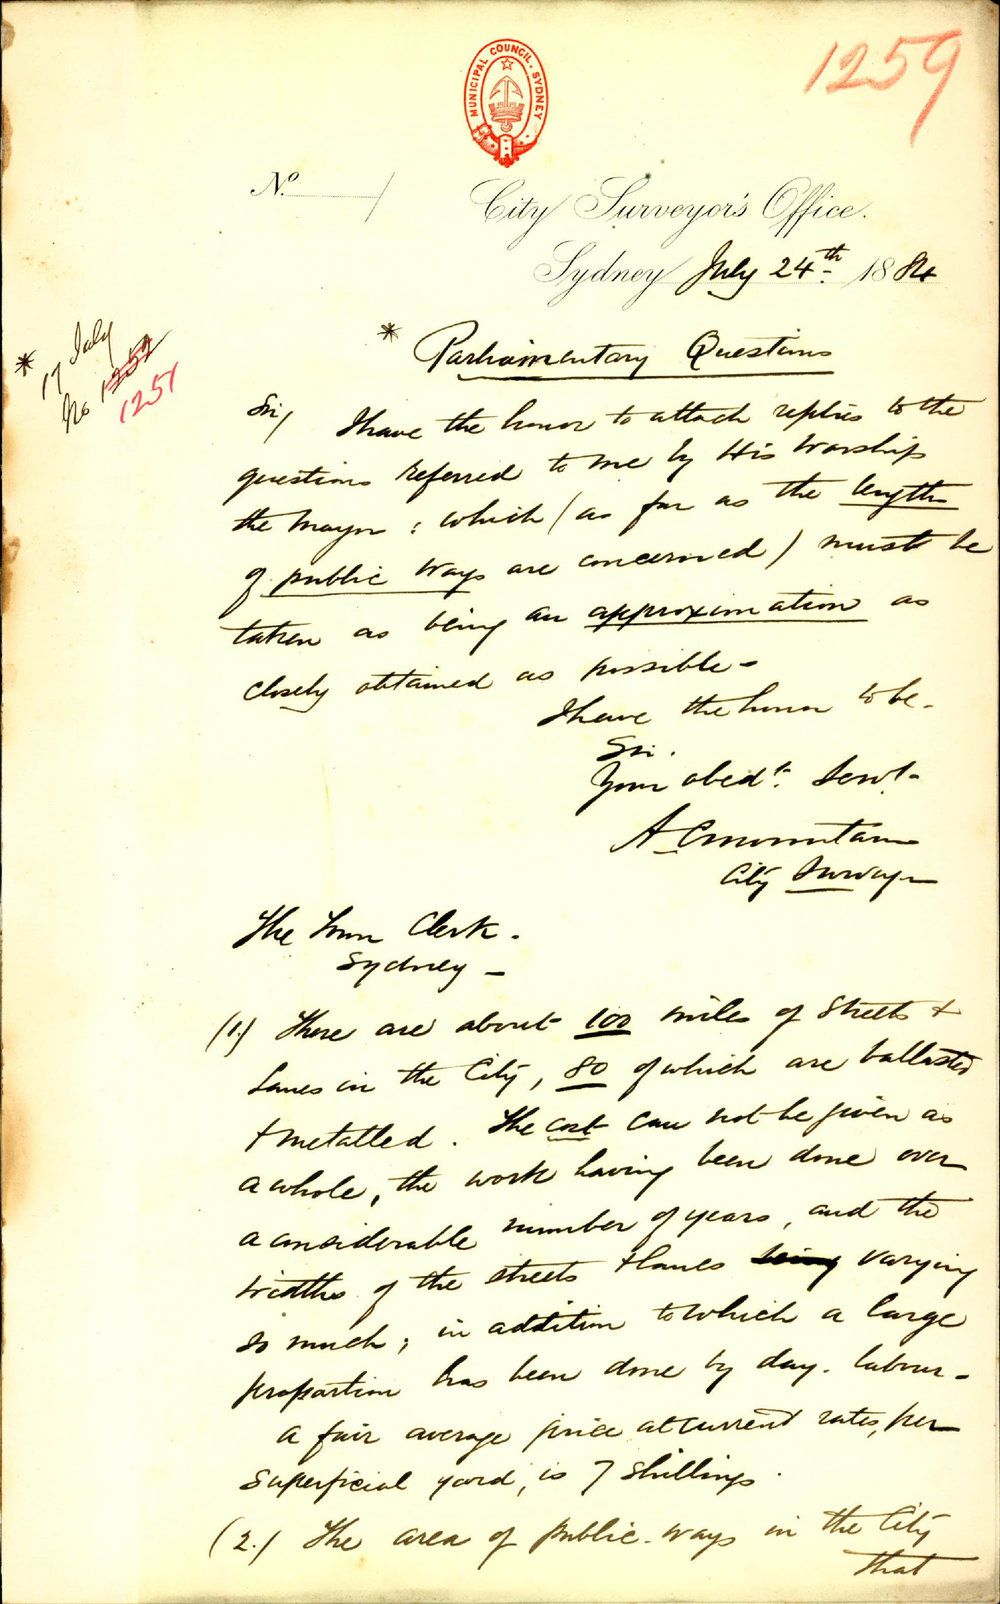 1259
MUNICIPAL COUNCIL. SYDNEY
No. /
City Surveyor's Office.
Sydney July 24th. 1884
* 17 July
No 1252
1251
* Parliamentary Questions
Sir/ I have the honor to attach replies to the
questions referred to me by His Worship
the Mayor; which (as far as the length
of public ways are concerned) must be
taken as being an approximation as
closely obtained as possible -
I have the honor to be.
Sir.
Your obedt. Servt.
City Surveyor
The Town Clerk.
Sydney -
(1.) There are about 100 miles of Streets &
Lanes in the City, 80 of which are ballasted
& metalled. The cost can not be given as
a whole, the work having been done over
a considerable number of years, and the
widths of the streets & lanes being varying
so much; in addition to which a large
proportion has been done by day. labour -
a fair average price at current rates, per
superficial yard, is 7 shillings.
(2.) The area of public-ways in the City
that